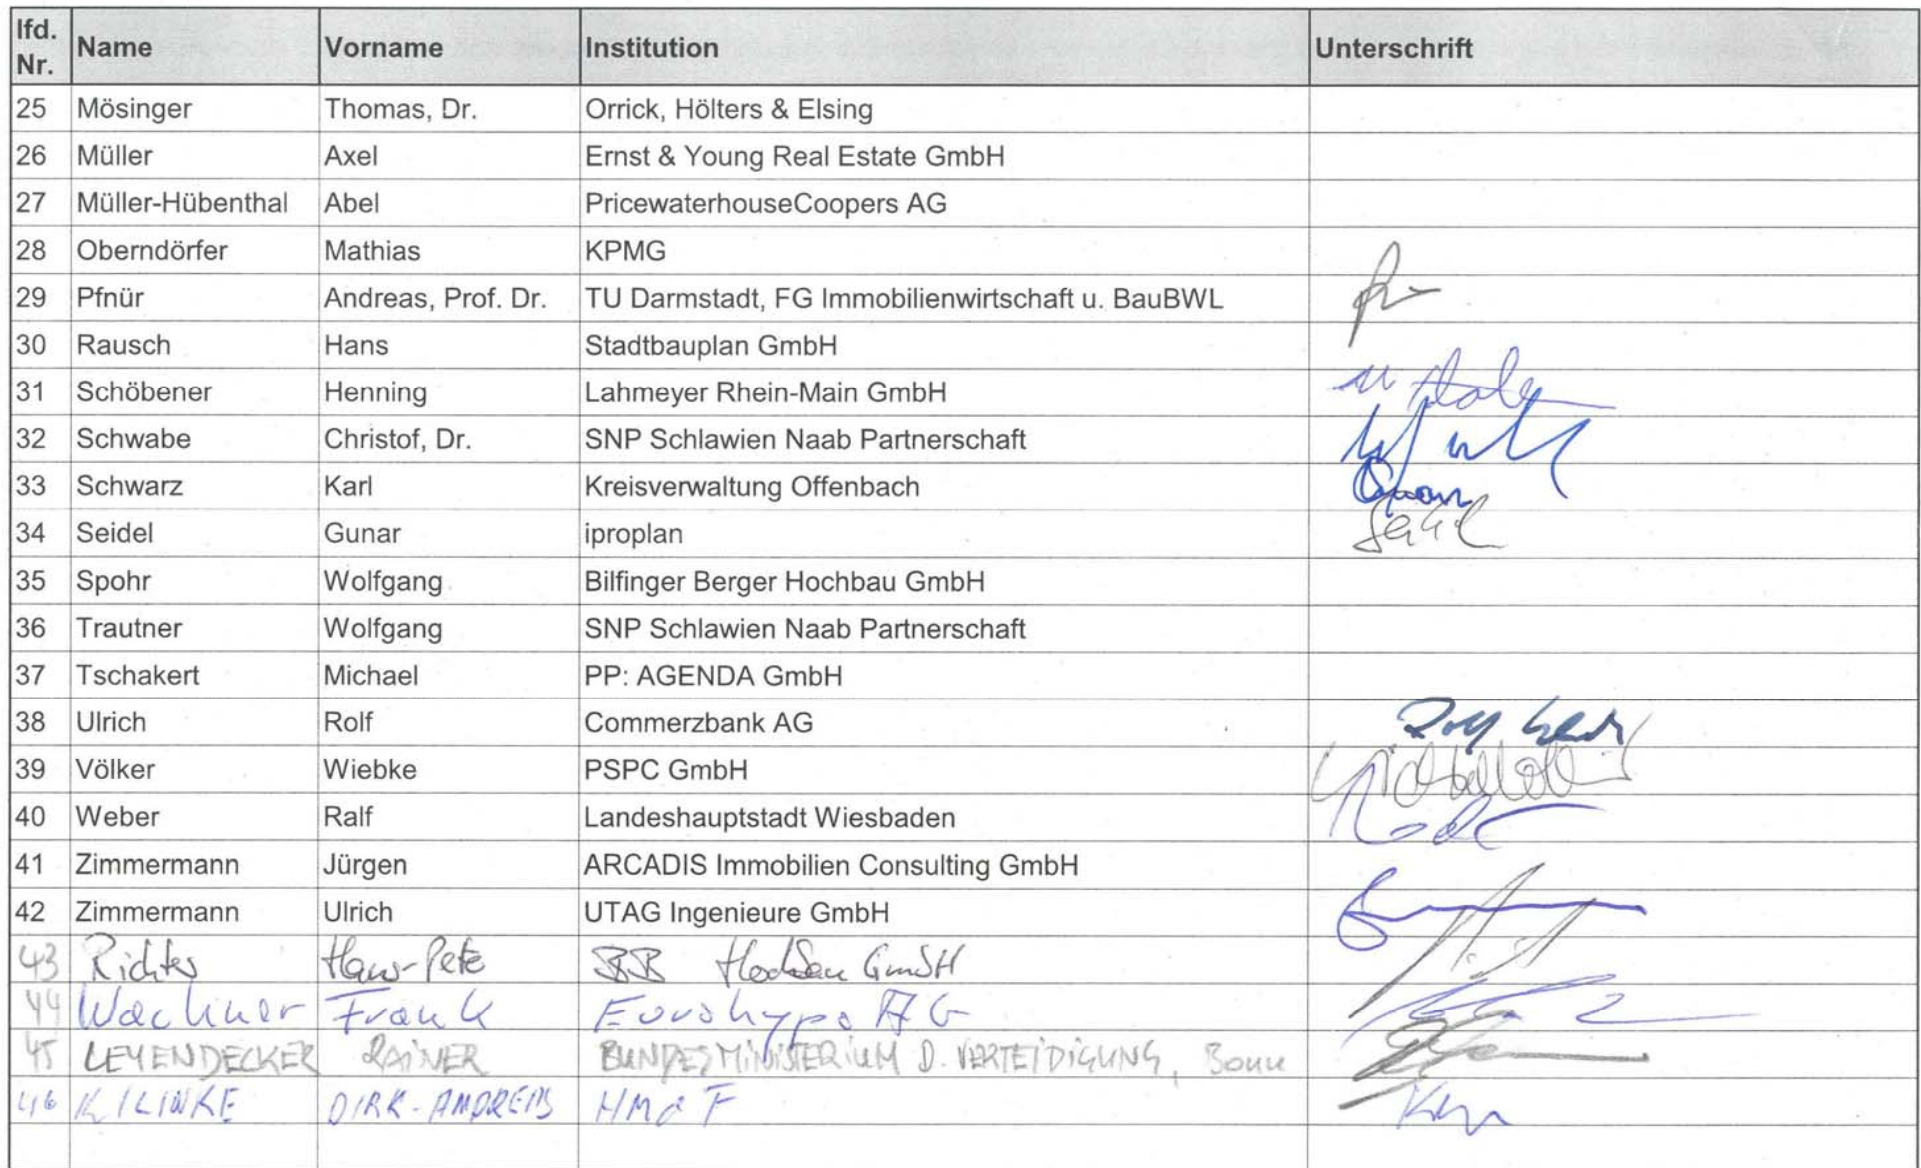 lfd. Nr. Name Vorname Institution Unterschrift
25 Mösinger Thomas, Dr. Orrick, Hölters & Elsing
26 Müller Axel Ernst & Young Real Estate GmbH
27 Müller-Hübenthal Abel PricewaterhouseCoopers AG
28 Oberndörfer Mathias KPMG
29 Pfnür Andreas, Prof. Dr. TU Darmstadt, FG Immobilienwirtschaft u. BauBWL
30 Rausch Hans Stadtbauplan GmbH
31 Schöbener Henning Lahmeyer Rhein-Main GmbH
32 Schwabe Christof, Dr. SNP Schlawien Naab Partnerschaft
33 Schwarz Karl Kreisverwaltung Offenbach
34 Seidel Gunar iproplan
35 Spohr Wolfgang Bilfinger Berger Hochbau GmbH
36 Trautner Wolfgang SNP Schlawien Naab Partnerschaft
37 Tschakert Michael PP: AGENDA GmbH
38 Ulrich Rolf Commerzbank AG
39 Völker Wiebke PSPC GmbH
40 Weber Ralf Landeshauptstadt Wiesbaden
41 Zimmermann Jürgen ARCADIS Immobilien Consulting GmbH
42 Zimmermann Ulrich UTAG Ingenieure GmbH
43 Richter Hans-Peter BB Hochbau GmbH
44 Frank Eurohypo AG
45 LEYENDECKER RAINER BUNDESMINISTERIUM D. VERTEIDIGUNG, Bonn
46 DIRK-ANDREAS HMdF